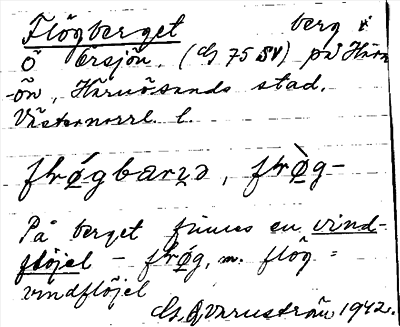 Flögberget berg i
Ö Ersjön, (G 75 SV) på Härn
-ön, Härnösands stad.
Västernorrl. l.
flǿgbærjə, flø̀g-
På berget finnes en vind-
flöjel - flǿg, m. flög =
vindflöjel
G. Qvarnström 1942.